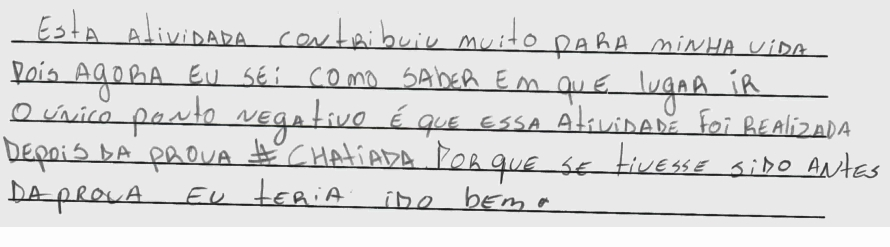 Esta atividada contribuiu muito para minha vida
pois agora eu sei como saber em que lugar ir
O único ponto negativo é que essa atividade foi realizada
depois da prova # chatiada porque se tivesse sido antes
da prova eu teria ido bem.